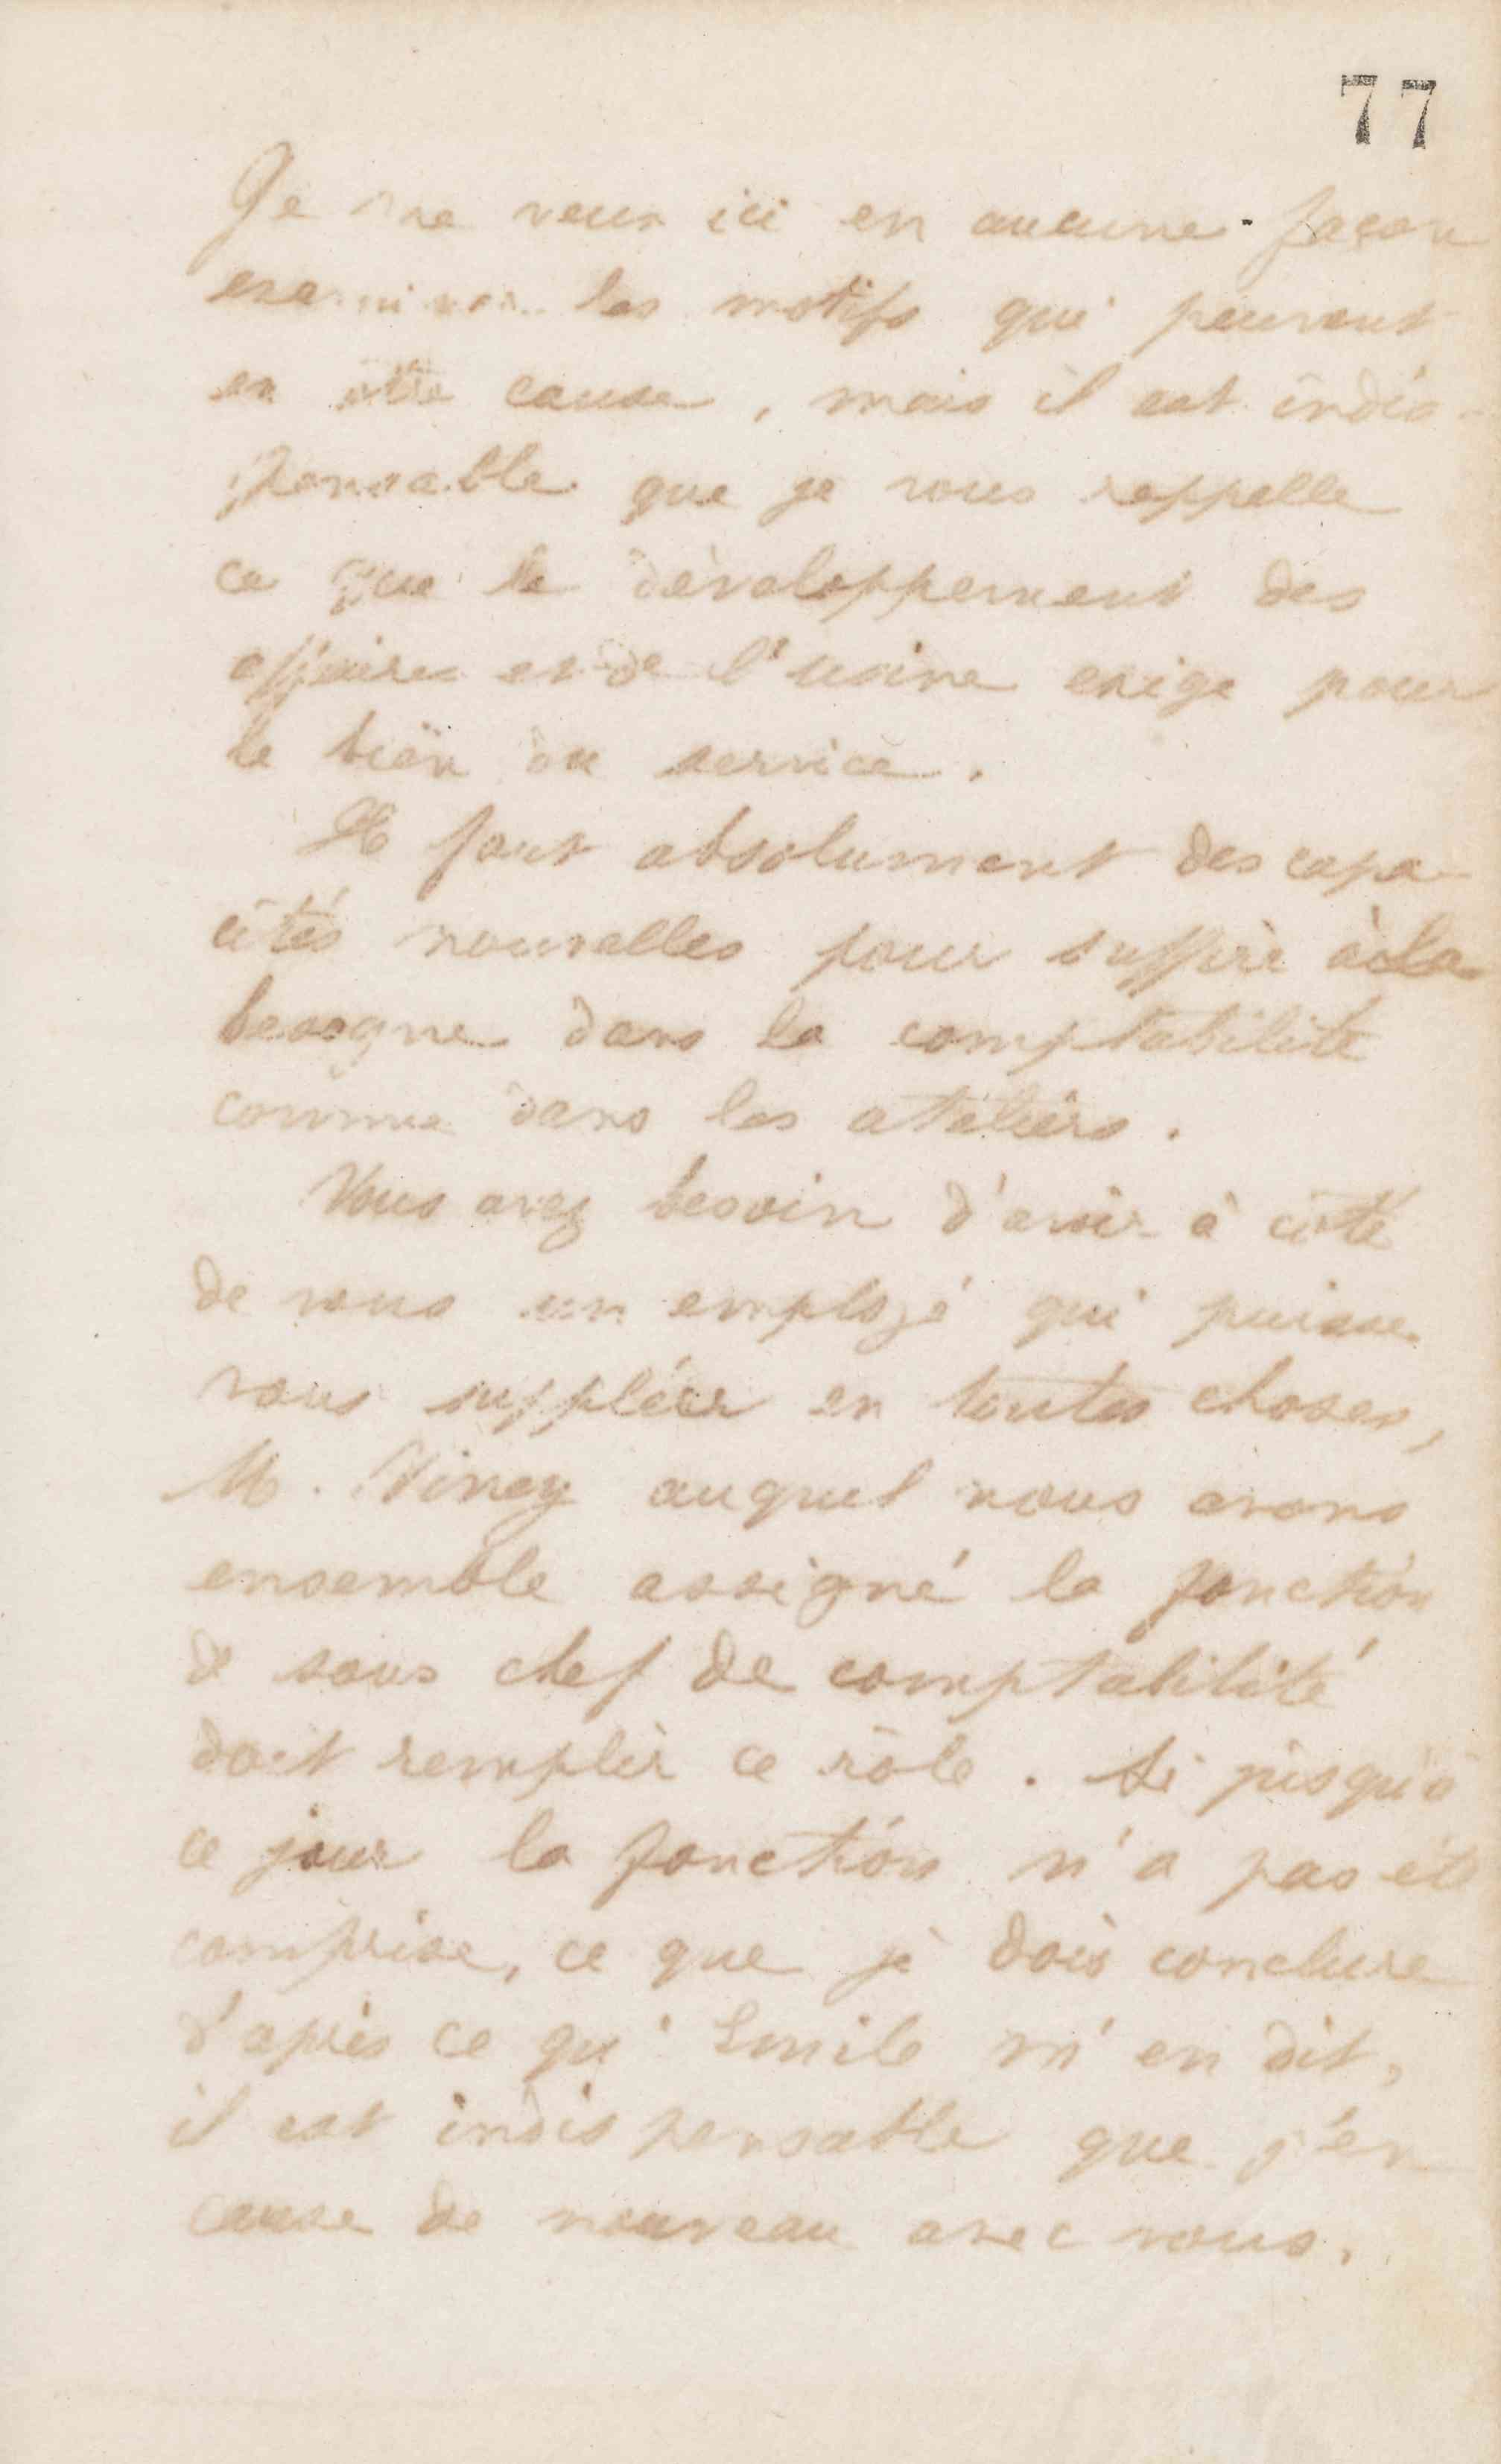 77
Je ne veux ici en aucune façon
examiner les motifs qui peuvent
en être cause, mais il est indis-
pensable que je vous rappelle
ce que le développement des
affaires et de l'usine exige pour
le bien du service.
Il faut absolument des capa-
cités nouvelles pour suffire à la
besogne dans la comptabilité
comme dans les ateliers.
Vous avez besoin d'avoir à côté
de vous un employé qui puisse
vous suppléer en toutes choses,
M. auquel nous avons
ensemble assigné la fonction
de sous chef de comptabilité
doit remplir ce rôle. Si jusqu'à
ce jour la fonction n'a pas été
comprise, ce que je dois conclure
d'après ce qu'Emile m'en dit,
il est indispensable que j'en
cause de nouveau avec vous.